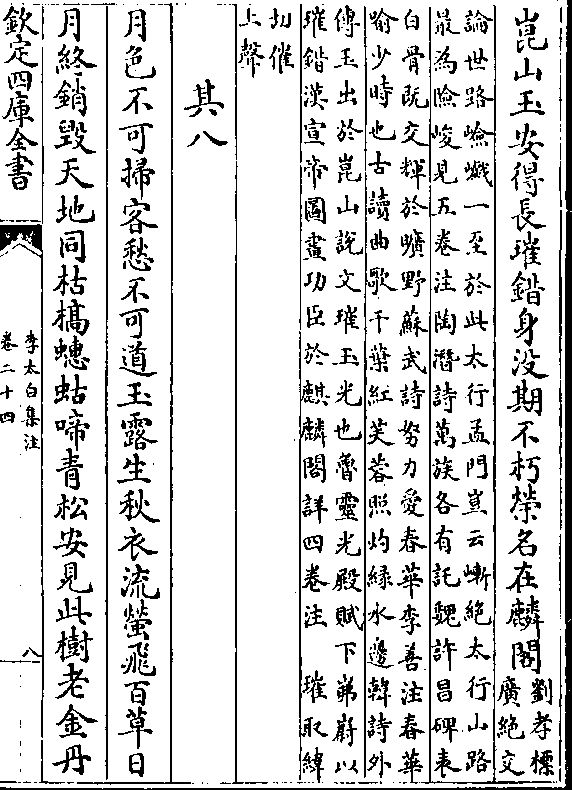 崑山玉安得長璀錯身没期不朽榮名在麟閣劉孝標
廣絶交
論世路嶮巇一至於此太行孟門豈云嶄絶太行山路
最為險峻見五卷注陶潛詩萬族各有託魏許昌碑表
白骨既交輝於曠野蘇武詩努力愛春華李善注春華
喻少時也古讀曲歌千葉紅芙蓉照灼緑水邊韓詩外
傳玉出於崑山說文璀玉光也魯靈光殿賦下岪蔚以
璀錯漢宣帝圖畫功臣於麒麟閣詳四卷注 璀取緯
切催
上聲
其八
月色不可掃客愁不可道玉露生秋衣流螢飛百草日
月終銷毁天地同枯槁蟪蛄啼青松安見此樹老金丹
欽定四庫全書
李太白集注
卷二十四
八